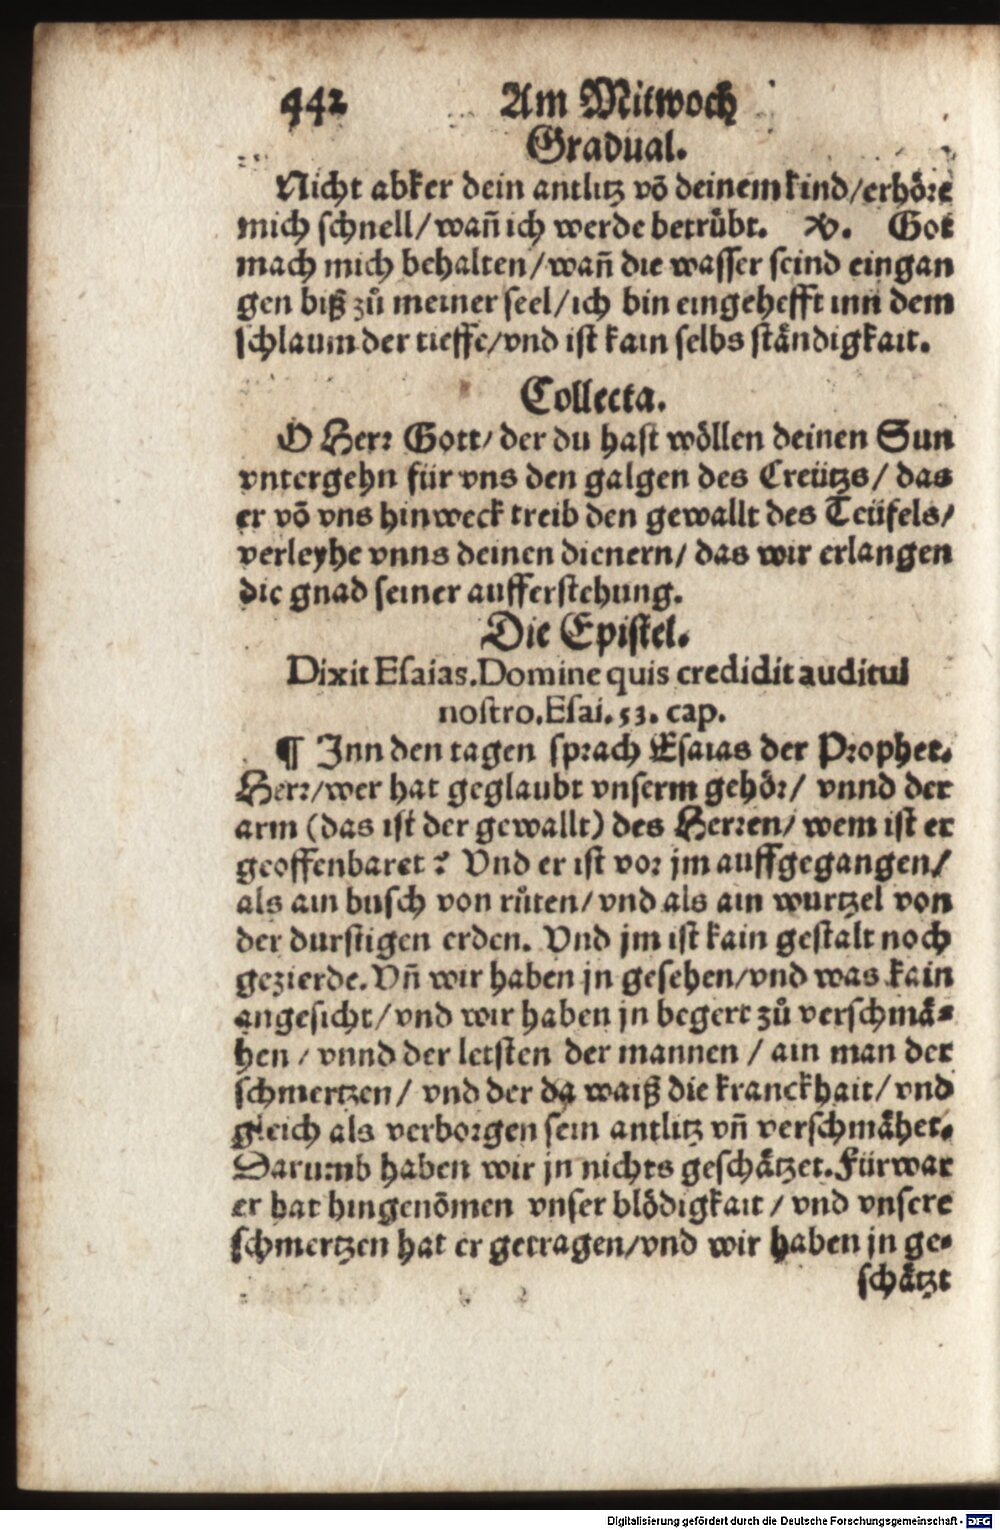 442 Am Mitwoch
Gradual.
Nicht abker dein antlitz võ deinem kind/erhöre
mich schnell/wañ ich werde betrübt. ℣. Got
mach mich behalten/wañ die wasser seind eingan
gen biß zů meiner seel/ich bin eingehefft inn dem
schlaum der tieffe/vnd ist kain selbs ständigkait.
Collecta.
O Herr Gott/ der du hast wöllen deinen Sun
vntergehn für vns den galgen des Creützs/ das
er võ vns hinweck treib den gewallt des Teüfels/
verleyhe vnns deinen dienern/ das wir erlangen
die gnad seiner aufferstehung.
Die Epistel.
Dixit Esaias.Domine quis credidit auditui
nostro.Esai.53. cap.
¶ Inn den tagen sprach Esaias der Prophet.
Herr/wer hat geglaubt vnserm gehör/ vnnd der
arm (das ist der gewallt) des Herren/ wem ist er
geoffenbaret? Vnd er ist vor jm auffgegangen/
als ain busch von růten/vnd als ain wurtzel von
der durstigen erden. Vnd jm ist kain gestalt noch
gezierde. Vñ wir haben jn gesehen/vnd was kain
angesicht/vnd wir haben jn begert zů verschmä-
hen / vnnd der letsten der mannen / ain man der
schmertzen/ vnd der da waiß die kranckhait/ vnd
gleich als verborgen sein antlitz vñ verschmähet.
Darumb haben wir jn nichts geschätzet. Fürwar
er hat hingenõmen vnser blödigkait / vnd vnsere
schmertzen hat er getragen/vnd wir haben jn ge-
schätzt
Digitalisierung gefördert durch die Deutsche Forschungsgemeinschaft - DFG